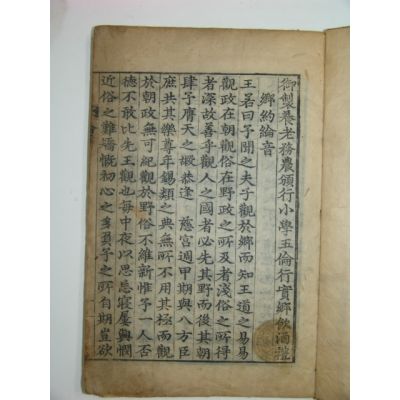 御製養老務農頒行小學五倫行實鄉飮酒禮
鄉約綸音
王若曰予聞之夫子觀於鄉而知王道之易易
觀政在朝觀俗在野政之所及者淺俗之所化
者深故善乎觀人之國者必先其野而後其朝
肆予膺天之嘏恭逢 慈宮週甲期與八方臣
庶共其樂尊年錫類之典無所不用其極而觀
於朝政無可紀觀於野俗不維新惟予一人否
德不敢比先王觀也每中夜以思患寢屢興憫
近俗之難
慨初心之
予之所自期豈欲